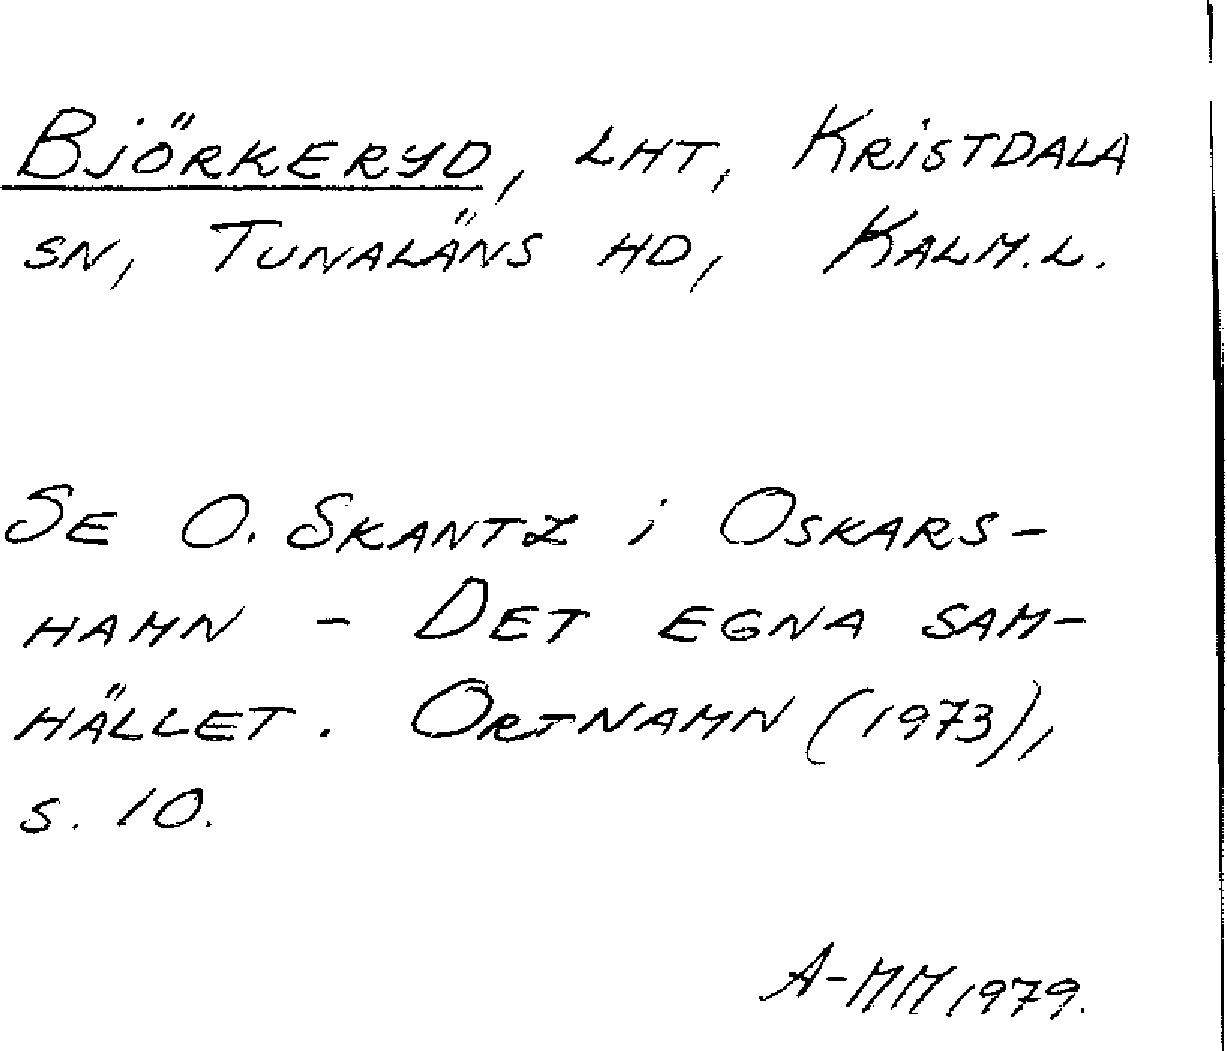 Björkeryd, lht, Kristdala
sn, Tunaläns hd, Kalm.l.
Se O. Skantz i Oskars-
hamn - Det egna sam-
hället. Ortnamn (1973),
s. 10.
A-MM 1979.